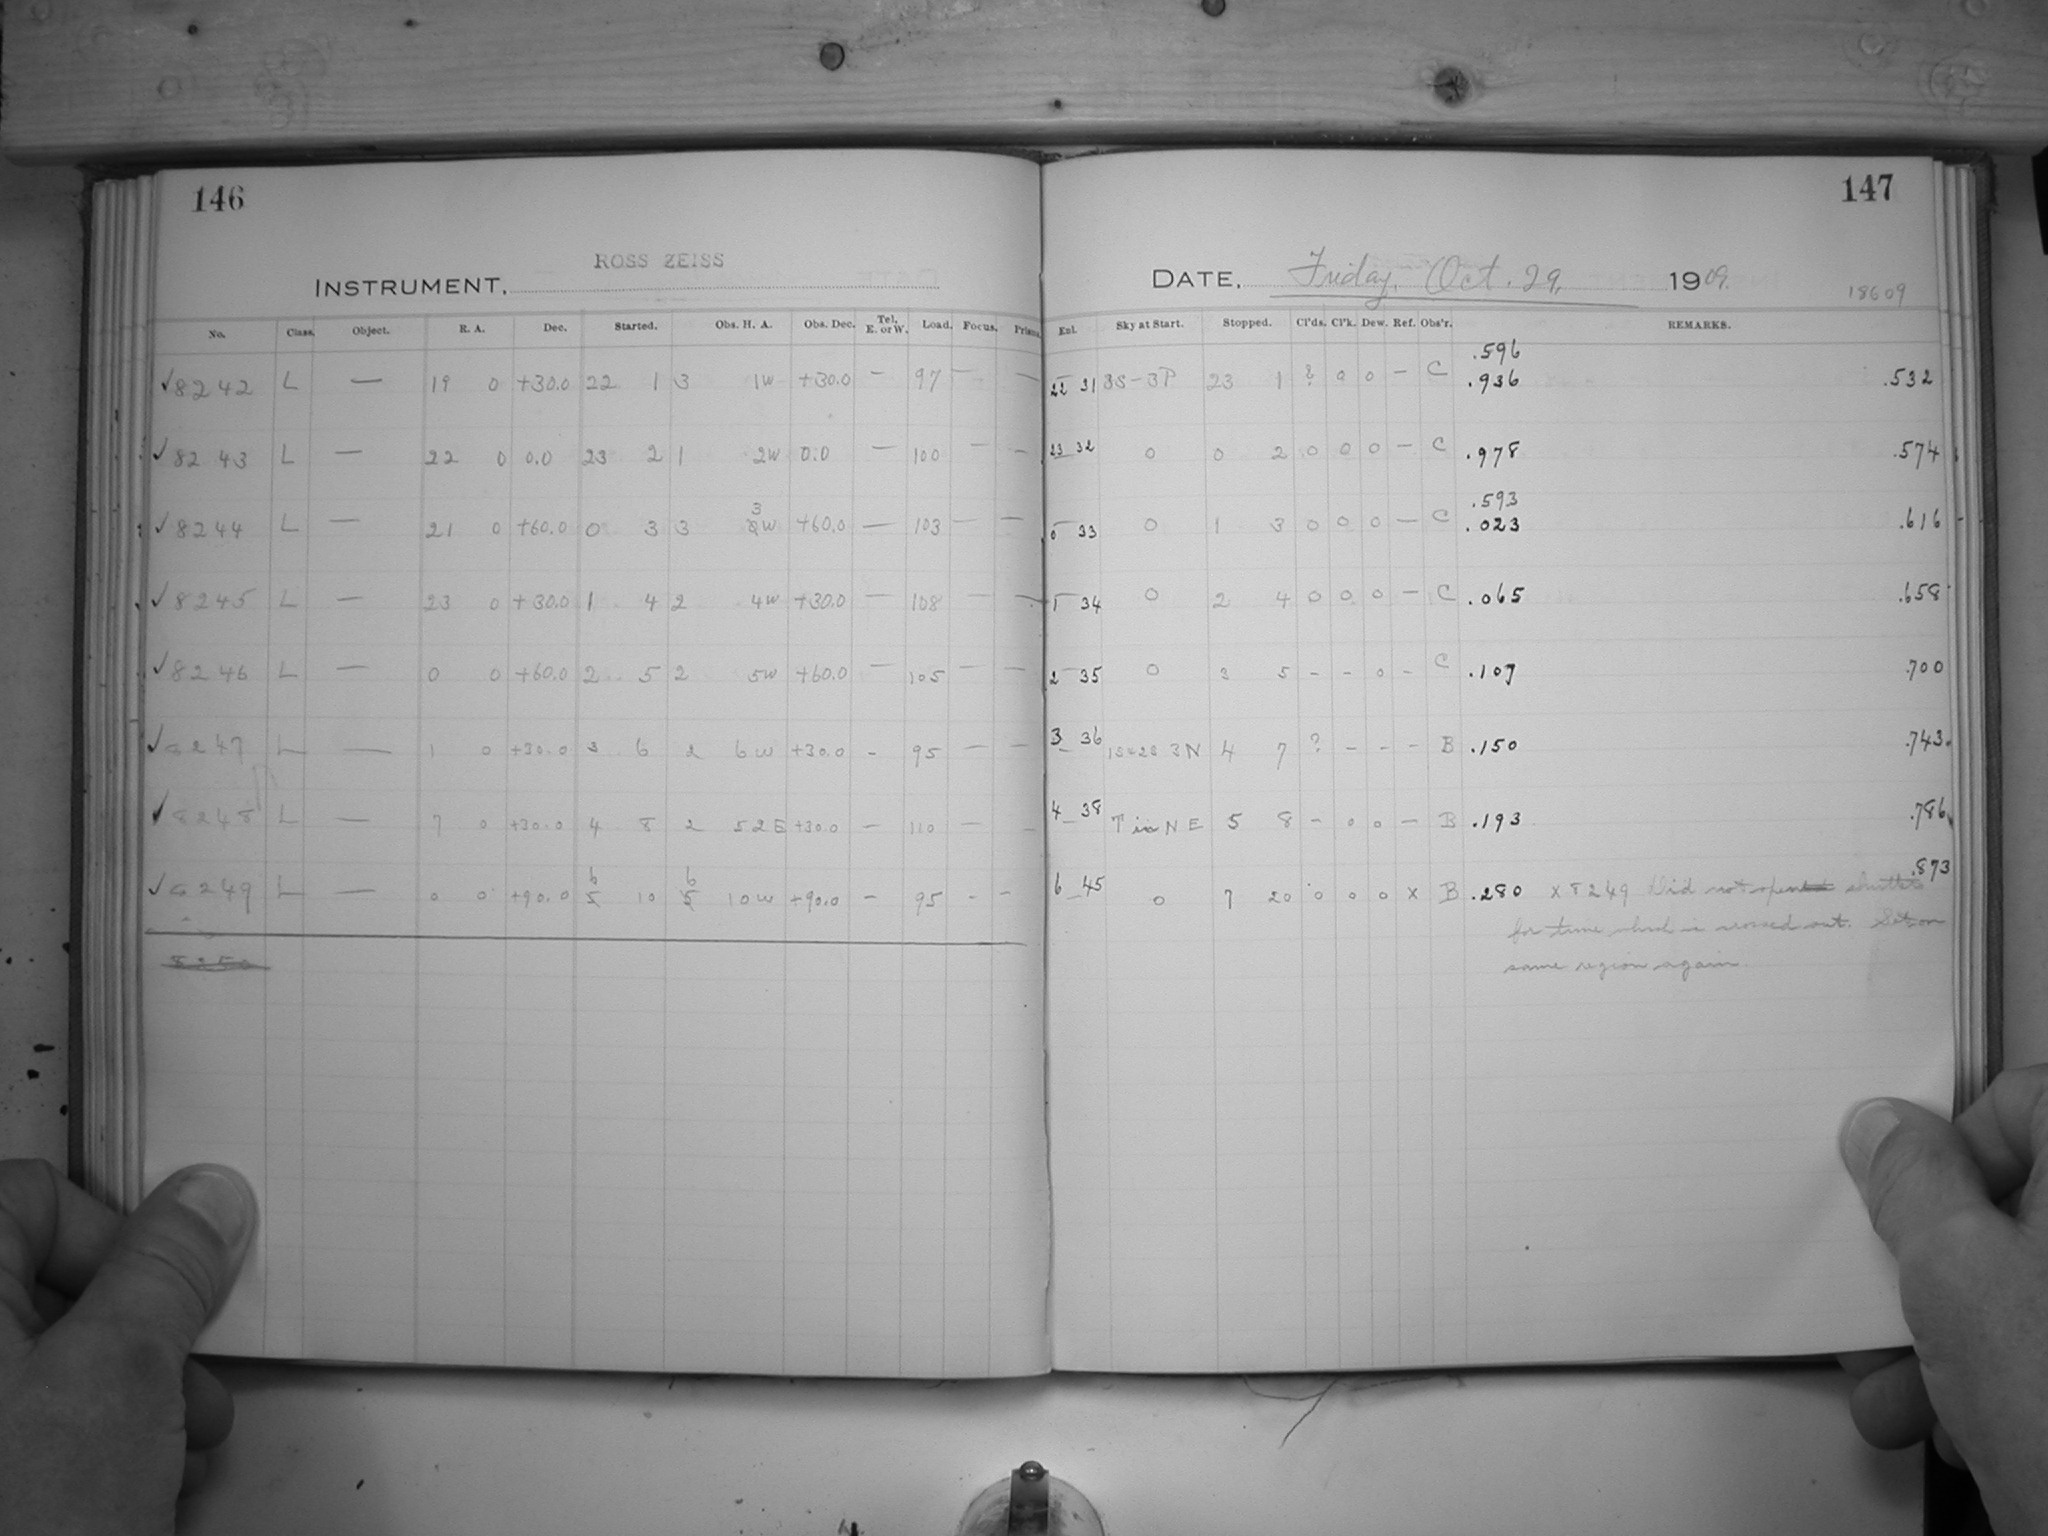 146
ROSS ZEISS
INSTRUMENT.
No. Class. Object. R. A. Dec. Started. Obs. H. A. Obs. Dec. Tel. E. or W. Load. Focus. Prism.
✓8242 L — 19 0 +30.0 22 1 3 1W +30.0 — 97 — —
✓8243 L — 22 0 0.0 23 2 1 2W 0.0 — 100 — —
✓8244 L — 21 0 +60.0 0 3 3 3W +60.0 — 103 — —
✓8245 L — 23 0 +30.0 1 4 2 4W +30.0 — 108 — —
✓8246 L — 0 0 +60.0 2 5 2 5W +60.0 — 105 — —
✓8247 L — 1 0 +30.0 3 6 2 6W +30.0 - 95 — —
✓8248 L — 7 0 +30.0 4 8 2 52E +30.0 — 110 — -
6 6
✓8249 L — 0 0 +90.0 5 10 5 10W +90.0 — 95 - -
8250
147
DATE. Friday, Oct. 29, 1909.
18609
Exl. Sky at Start. Stopped. Cl'ds. Cl'k. Dew. Ref. Obs'r. REMARKS.
.596
22 31 3S-3P 23 1 ? 0 0 — C .936 .532
23 32 0 0 2 0 0 0 — C .978 .574
.593
0 33 0 1 3 0 0 0 — C .023 .616
1 34 0 2 4 0 0 0 — C .065 .658
2 35 0 3 5 - - 0 - C .107 .700
3 36 1S=2S 3N 4 7 ? - - - B .150 .743
4 38 T in N E 5 8 - 0 0 — B .193 .786
.873
6 45 0 7 20 0 0 0 x B .280 x 8249 Did not open shutter
for time which is crossed out. Set on
same region again.